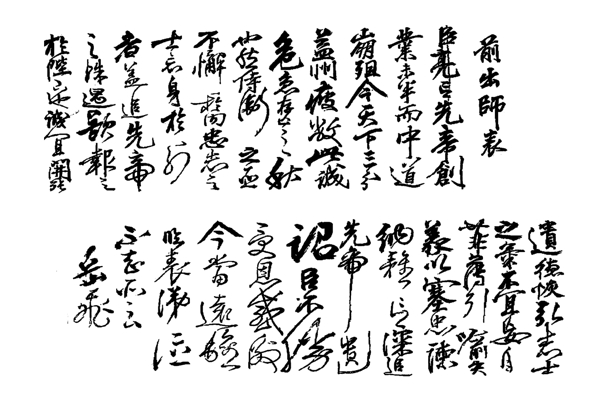 前出師表
臣亮言先帝創
業未半而中道
崩殂今天下三分
益州疲敝此誠
危急存亡之秋
也然侍衛之臣
不懈於內忠志之
士忘身於外
者蓋追先帝
之殊遇欲報之
於陛下也誠宜開張
遺德恢弘志士
之氣不宜妄自
菲薄引喻失
義以塞忠諫
納雅言深追
先帝遺
詔臣不勝
受恩感激
今當遠離
臨表涕泣
不知所云
岳飛